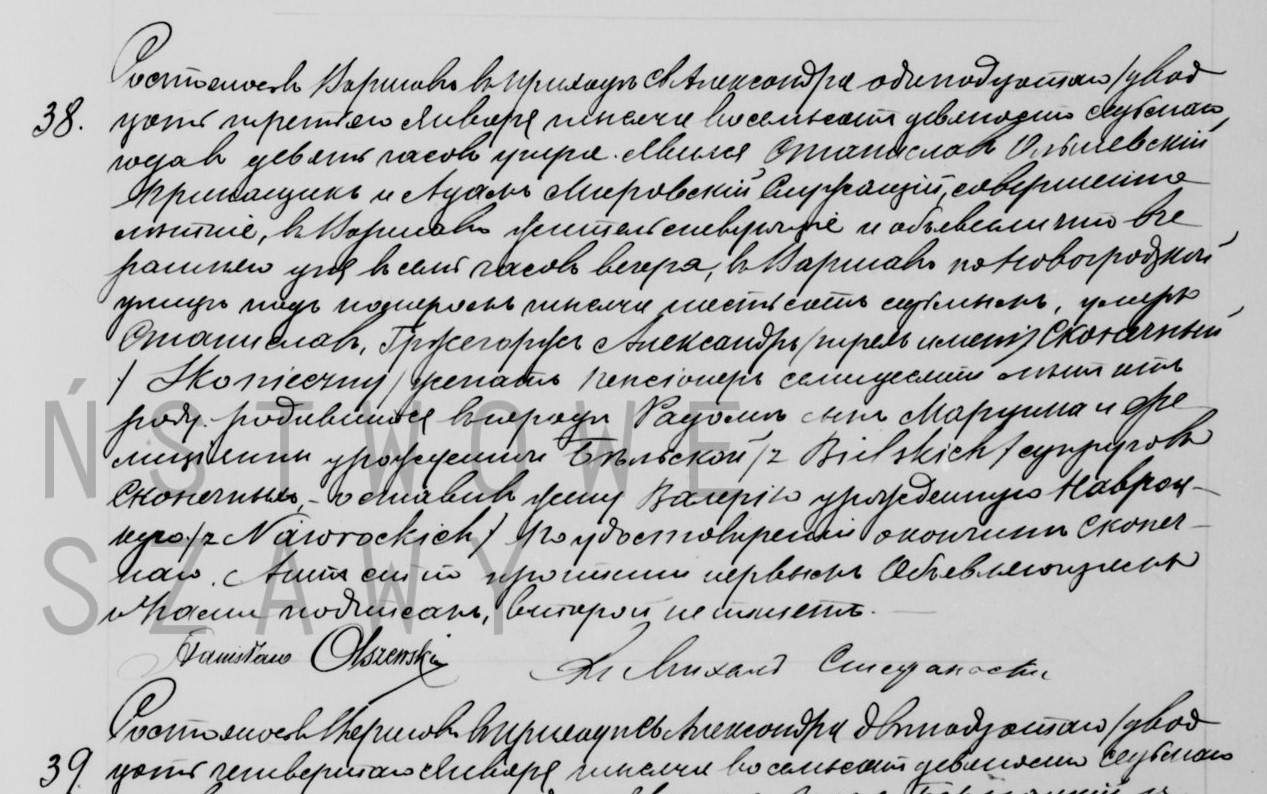 38.
Состоялось въ Варшавѣ въ приходѣ Св Александра одинадцатаго /двад
цать третьяго Января тысяча восемьсотъ девяносто седьмаго
года въ девять часовъ утра. Явился Станиславъ Ольшевскій
прикащикъ и Адамъ Мировскій Служащій, совершенно
лѣтніе, въ Варшавѣ жительствующіе и объявили что вче
рашняго дня въ семь часовъ вечера, въ Варшавѣ по Новогродзкой
улицѣ подъ номеромъ тысяча шестьсотъ седьмымъ, умеръ
Станиславъ, Гржегоржъ Александръ /трехъ именъ/ Сконечный
/ Skonieczny / женатъ пенсіонеръ семидесяти лѣтъ отъ
роду. родившійся въ городѣ Радомѣ сынъ Марцина и Фе
лиціянны урожденной Бѣльской /z Bielskich/ супруговъ
Сконечныхъ, - оставивъ жену Валерію урожденную Навроц-
кую /z Nawrockich/ По удостовѣреніи о кончинѣ Сконеч-
наго. Актъ сей по прочтеніи первымъ Объявляющимъ
и Нами подписанъ, второй не пишетъ. —
Stanisław Olszewski
Кс Михалъ
39.
Состоялось въ Варшавѣ въ приходѣ Св Александра двѣнадцатаго /двад
цать четвертаго Января тысяча восемьсотъ девяносто седьмаго
ŃSTWOWE
SZAWY